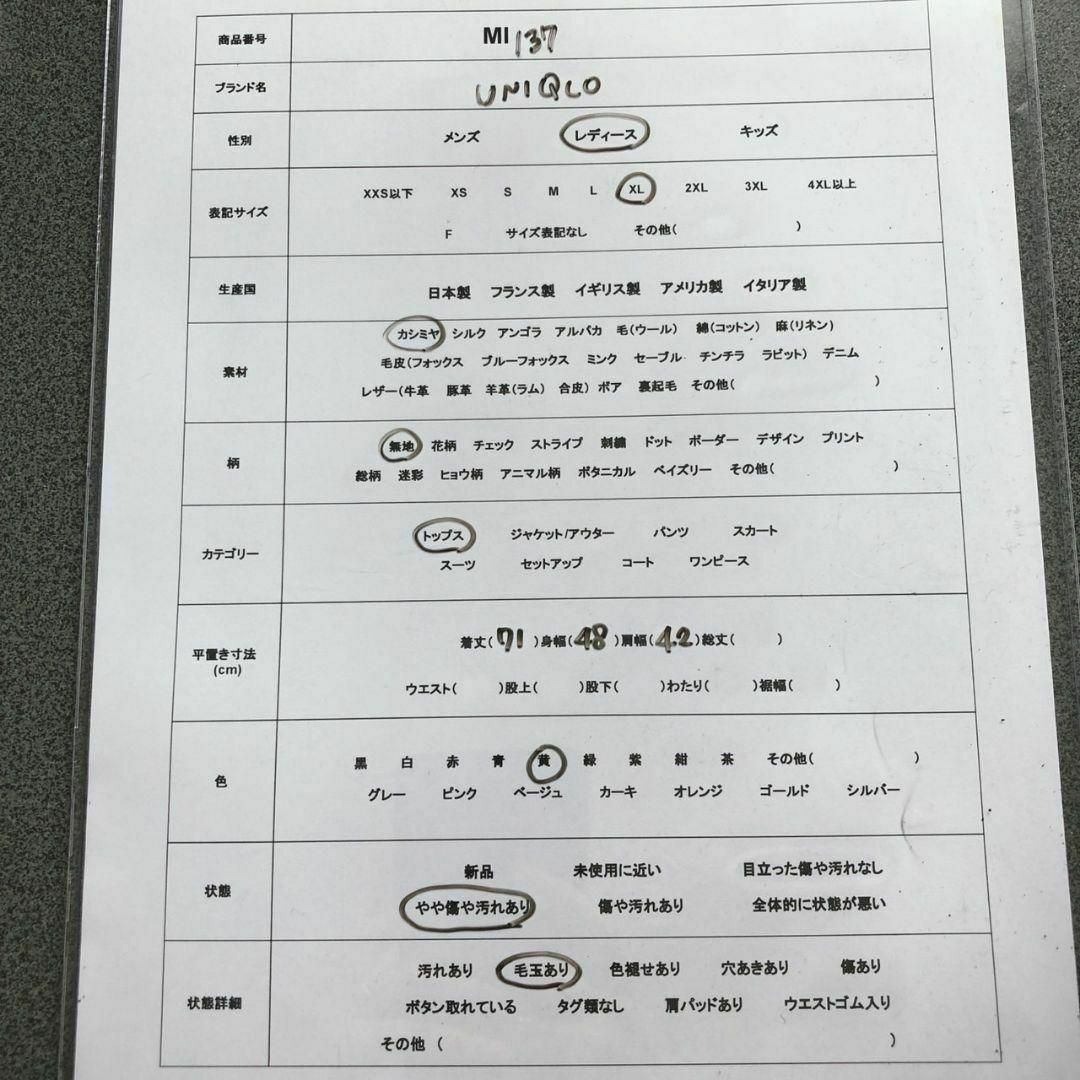 商品番号 MI 137
ブランド名 UNIQLO
性別 メンズ レディース キッズ
XXS以下 XS S M L XL 2XL 3XL 4XL以上
表記サイズ
F サイズ表記なし その他( )
生産国 日本製 フランス製 イギリス製 アメリカ製 イタリア製
カシミヤ シルク アンゴラ アルパカ 毛(ウール) 綿(コットン) 麻(リネン)
素材 毛皮(フォックス ブルーフォックス ミンク セーブル チンチラ ラビット) デニム
レザー(牛革 豚革 羊革(ラム) 合皮) ボア 裏起毛 その他( )
無地 花柄 チェック ストライプ 刺繍 ドット ボーダー デザイン プリント
柄
総柄 迷彩 ヒョウ柄 アニマル柄 ボタニカル ペイズリー その他( )
トップス ジャケット/アウター パンツ スカート
カテゴリー
スーツ セットアップ コート ワンピース
着丈(71)身幅(48)肩幅(42)総丈( )
平置き寸法
(cm)
ウエスト( )股上( )股下( )わたり( )裾幅( )
黒 白 赤 青 黄 緑 紫 紺 茶 その他( )
色
グレー ピンク ベージュ カーキ オレンジ ゴールド シルバー
新品 未使用に近い 目立った傷や汚れなし
状態
やや傷や汚れあり 傷や汚れあり 全体的に状態が悪い
汚れあり 毛玉あり 色褪せあり 穴あきあり 傷あり
状態詳細 ボタン取れている タグ類なし 肩パッドあり ウエストゴム入り
その他 ( )